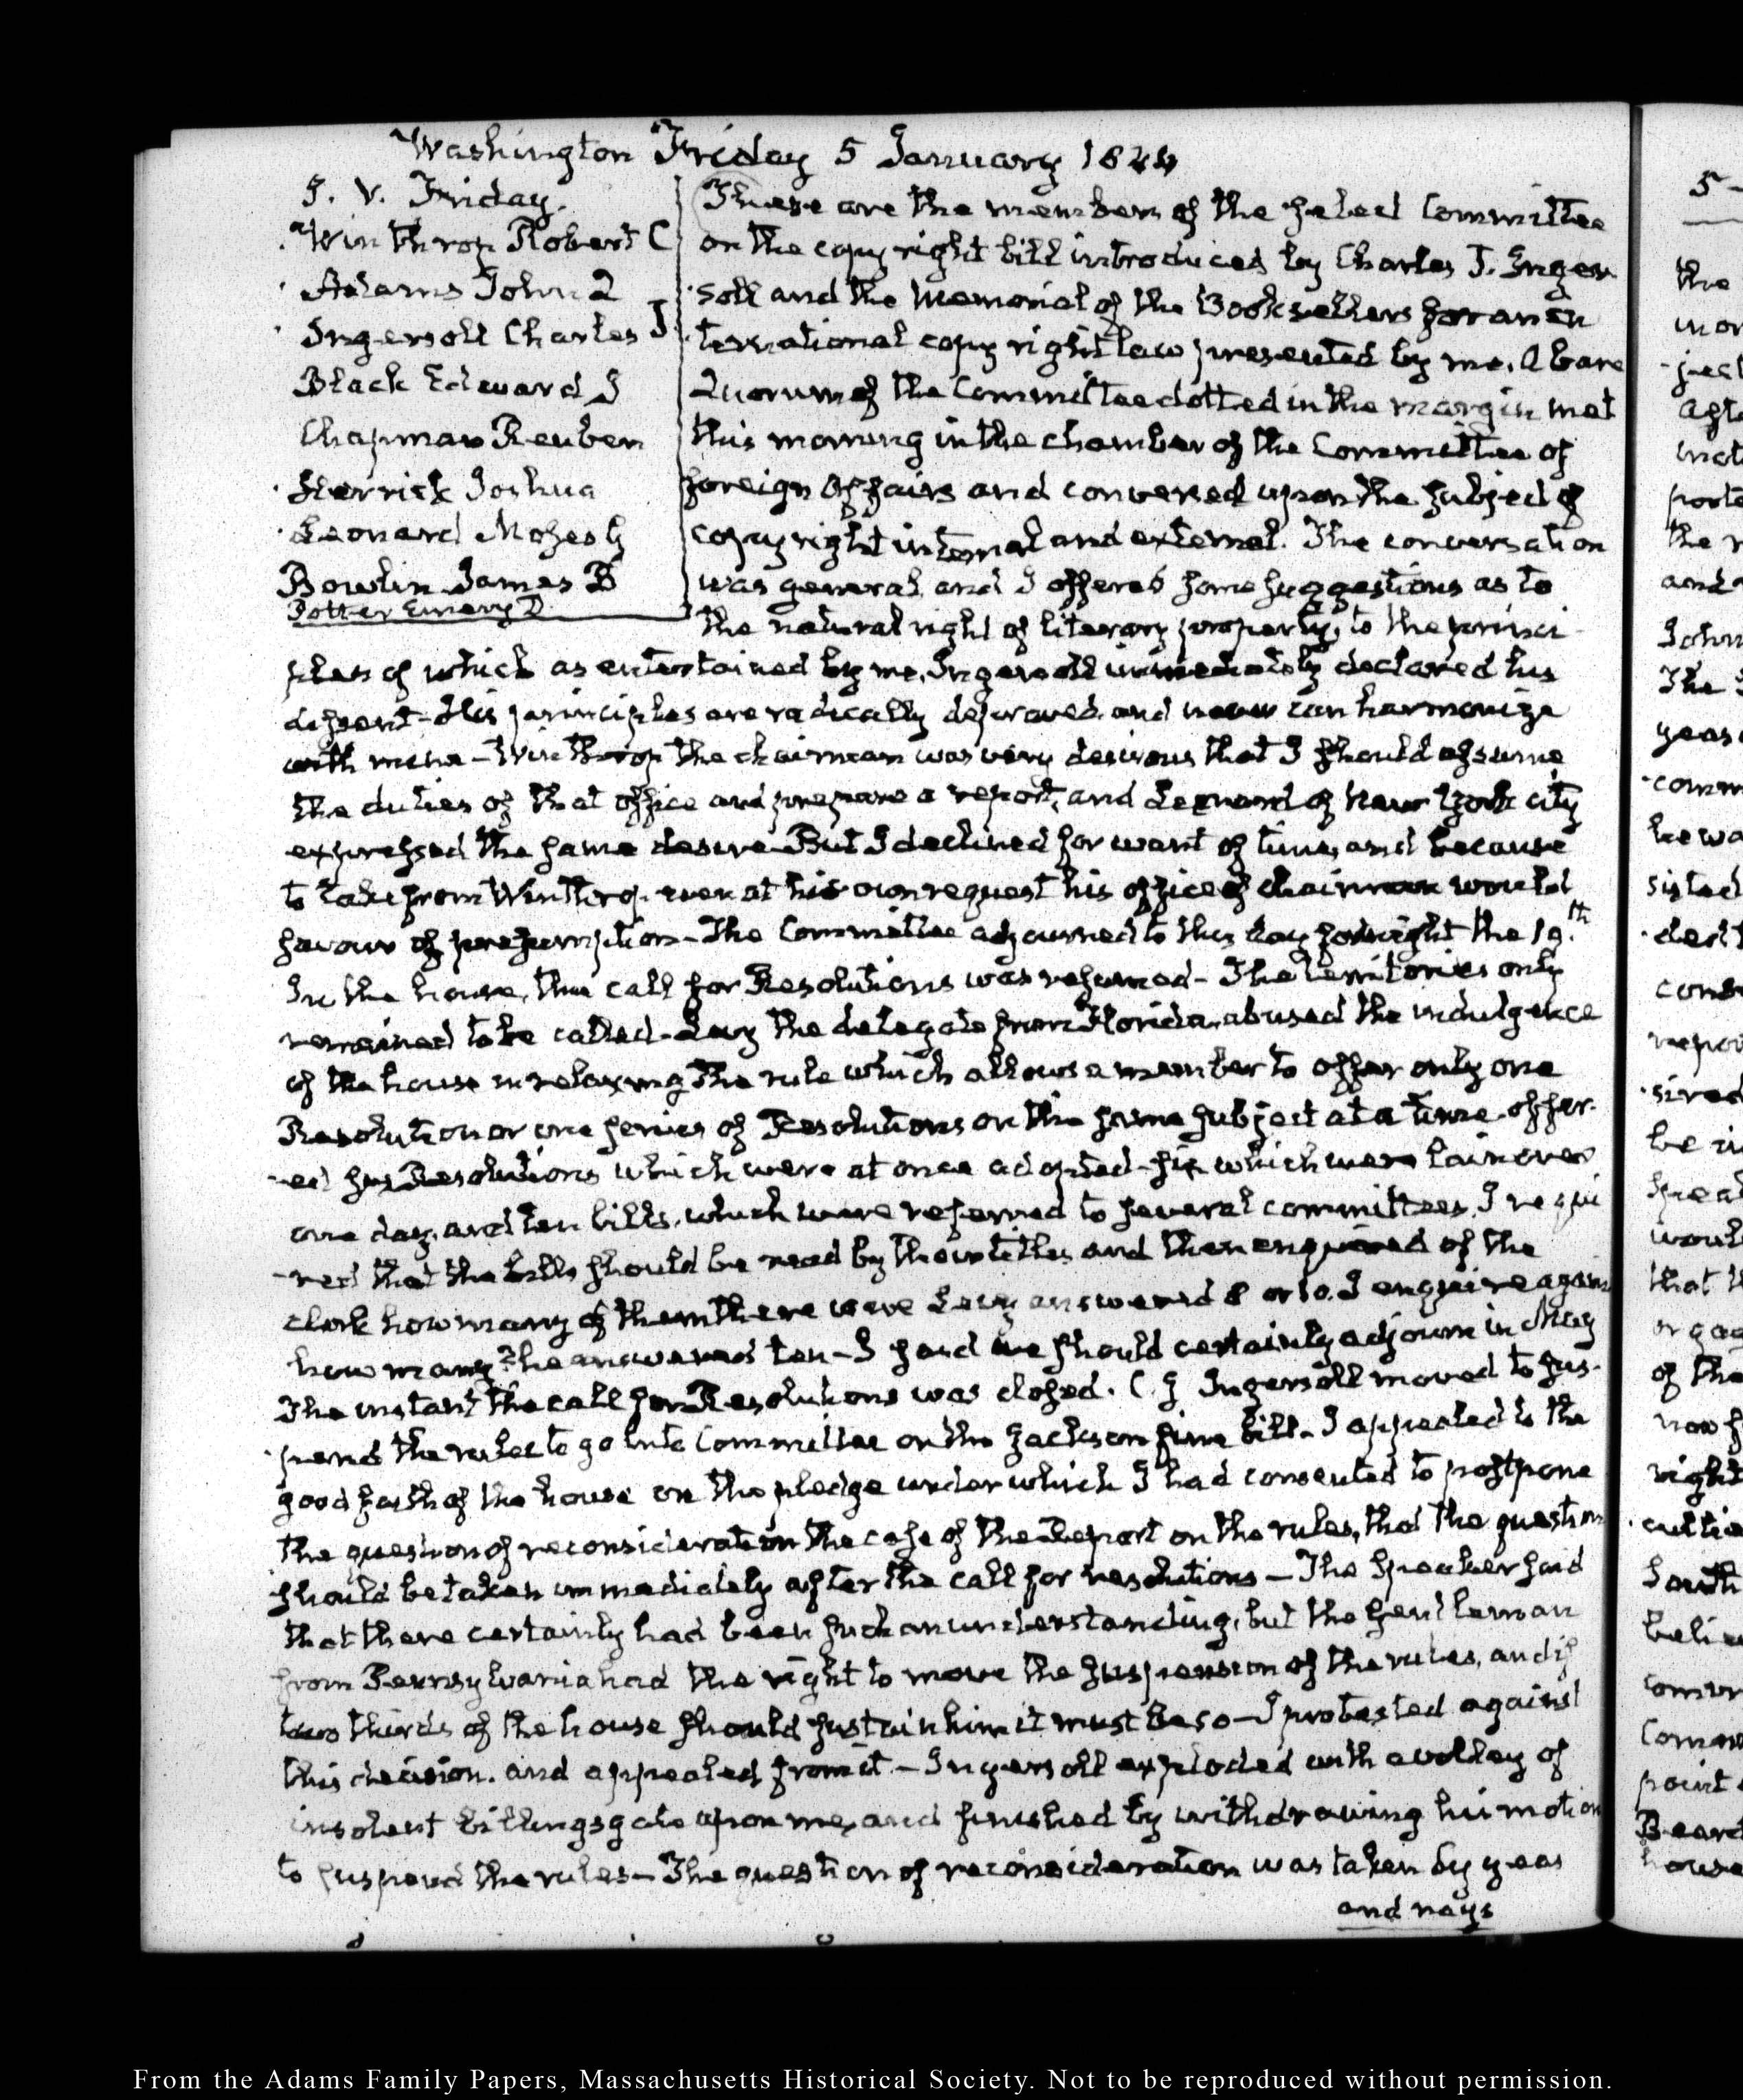 Washington Friday 5 January 1844
5. V. Friday.
Winthrop Robert C
Adams John Q
Ingersoll Charles J
Black Edward J
Chapman Reuben
Herrick Joshua
Leonard Moses G
Bowlin James B
Potter Emery D.
These are the members of the select Committee
on the copy right bill introduced by Charles J. Inger
soll and the Memorial of the Booksellers for an in
ternational copy right law presented by me. A bare
Quorum of the Committee dotted in the margin met
this morning in the chamber of the Committee of
foreign Affairs and conversed upon the subject of
copy right internal and external. The conversation
was general, and I offered some suggestions as to
the natural right of literary property, to the princi-
ples of which as entertained by me, Ingersoll immediately declared his
dissent - His principles are radically depraved, and never can harmonize
with mine - Winthrop the chairman was very desirous that I should assume
the duties of that office and prepare a report, and Leonard of New York city
expressed the same desire - But I declined for want of time, and because
to take from Winthrop even at his own request his office of chairman would
savour of presumption - The Committee adjourned to this day fortnight the 19.th
In the house, the call for Resolutions was resumed - The territories only
remained to be called - Levy the delegate from Florida, abused the indulgence
of the house in relaxing the rule which allows a member to offer only one
Resolution or one series of Resolutions on the same subject at a time - offer-
-ed six Resolutions which were at once adopted - six which were laid over
one day, and ten bills, which were referred to several committees. I requi
-red that the bills should be read by their titles and then enquired of the
clerk how many of them there were Levy answered 8 or 10. I enquire again
how many? he answered ten - I said we should certainly adjourn in May
The instant the call for Resolutions was closed. C. J Ingersoll moved to sus-
-pend the rules to go into Committee on the Jackson fine bill - I appealed to the
good faith of the house on the pledge under which I had consented to postpone
the question of reconsideration in the case of the Report on the rules, that the question
should be taken immediately after the call for resolutions - The Speaker said
that there certainly had been such an understanding, but the gentleman
from Pennsylvania had the right to move the suspension of the rules, and if
two thirds of the house should sustain him it must be so - I protested against
this decision. and appealed from it - Ingersoll exploded with a volley of
insolent billingsgate upon me, and finished by withdrawing his motion
to suspend the rules - The question of reconsideration was taken by yeas
and nays
5 -
the
After
the
and
The
years
that
of the
now
right
South
point
Beard
house
From the Adams Family Papers, Massachusetts Historical Society. Not to be reproduced without permission.